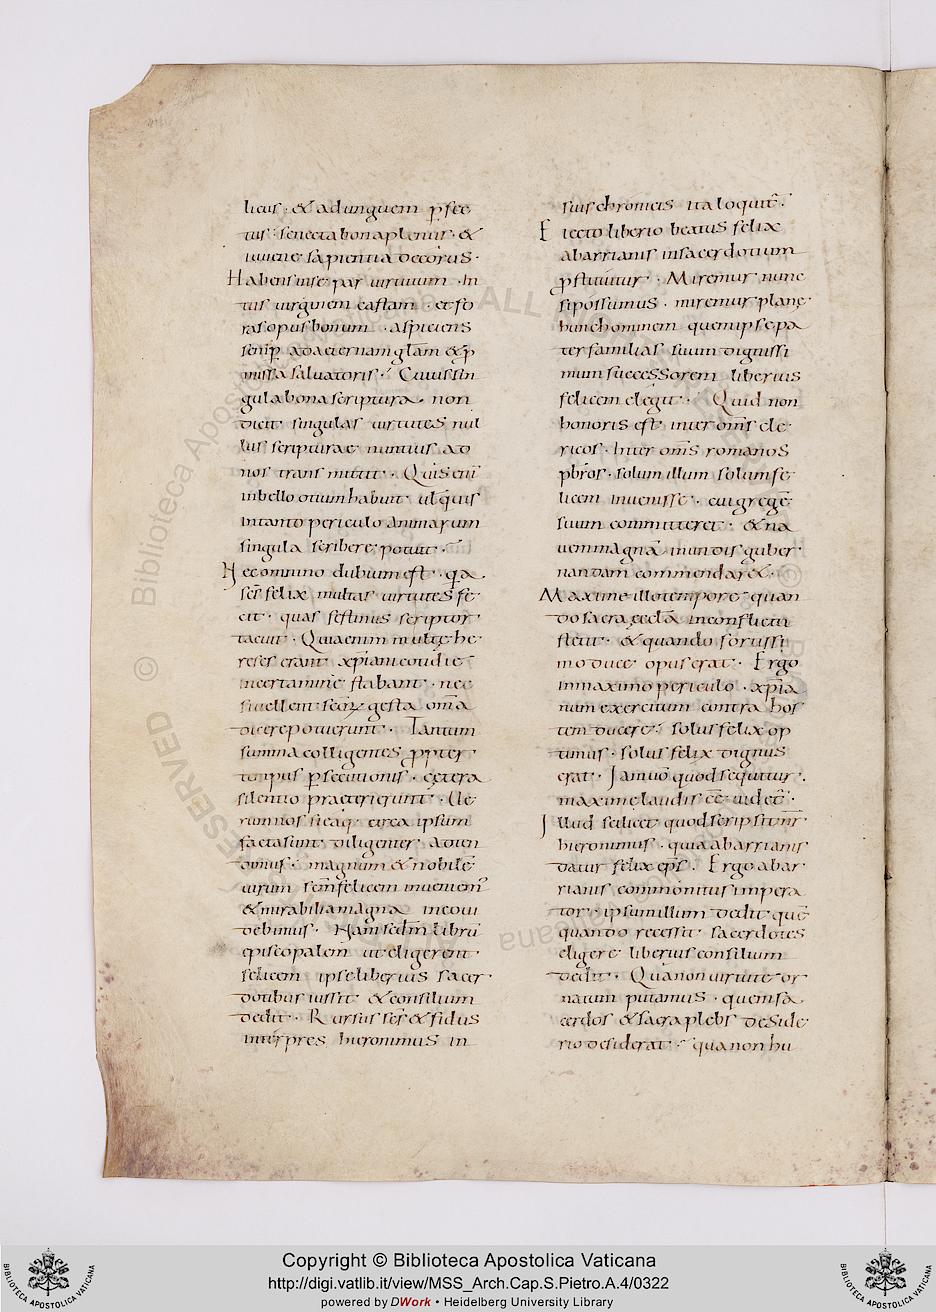 licus · & ad unguem p̱fec
tus · senecta bona plenus · &
iuuene sapientia decorus ·
Habens in se par uirtutum · In
tus uirginem castam · et fo
ras opus bonum · aspiciens
semp̱ ad aeternam gl̄am & p̱
missa saluatoris · Cuius sin
gula bona scriptura · non
dicit singulas uirtutes nul
lus scripturae nuntius ad
nos trans mittit · Quis eni͂
in bello otium habuit · ul̄ quis
in tanto periculo animarum
singula scribere potuit ·
Nec omnino dubium est · q̄a ·
sc̄s felix multas uirtutes fe
cit · quas festinus scriptor
tacuit · Quia enim multę he
reses erant xp̄iani cotidie
in certamine stabant · nec
si uellent sc̄orum gesta om̄a
dicere potuerunt · Tantum
summa colligentes p̱pter
tempus p̱secutionis · cetera
silentio praeterierunt · Ue
rum nos sicaq; circa ipsum
facta sunt diligenter adten
damus · magnum & nobile͂
uirum sc̄m felicem inueniem᾽
& mirabilia magna in eo ui
debimus · Nam sed̄m libru͂
episcopalem ut eligerent
felicem ipse liberius sacer
dotibus iussit & consilium
dedit · Rursus sc̄s & fidus
interpres hieronimus in
suis chronicis ita loquit᷑ ·
Eiecto liberio beatus felix
ab arrianis in sacerdotium
p̱stituitur · Miremur nunc
si possumus · miremur planę
hunc hominem quem ipse pa
ter familias suum dignissi
mum successorem liberius
felicem elegit · Quid non
honoris est inter om̄s cle
ricos · Inter om̄s romanos
pb̄ros · solum illum solum fe
licem inuenisse · cui grege͂
suum committeret · & na
uem magna͂ mundis guber
nandam commendar& ·
Maxime illo tempore quan
do sacra eccl̄a in conflictu
stetit · & quando fortissi
mo duce opus erat · Ergo
in maximo periculo · xp̄ia
num exercitum contra hos
tem ducere · solus felix op
timus · solus felix dignus
erat · Iam uō quod sequitur ·
maxime laudis ēe uidet᷑ ·
Illud scilicet quod scripsit nr̄
hieronimus · quia ab arrianis
datur felix ep̄s · Ergo ab ar
rianis commonitus impera
tor · ipsum illum dedit que͂
quando recessit sacerdotes
eligere liberius consilium
dedit · Qua non uirtute or
natum putamus · quem sa
cerdos & sacra plebs deside
rio desiderat · qua non hu
Copyright © Biblioteca Apostolica Vaticana
http://digi.vatlib.it/view/MSS_Arch.Cap.S.Pietro.A.4/0322
powered by DWork • Heidelberg University Library
BIBLIOTECA APOSTOLICA VATICANA
BIBLIOTECA APOSTOLICA VATICANA